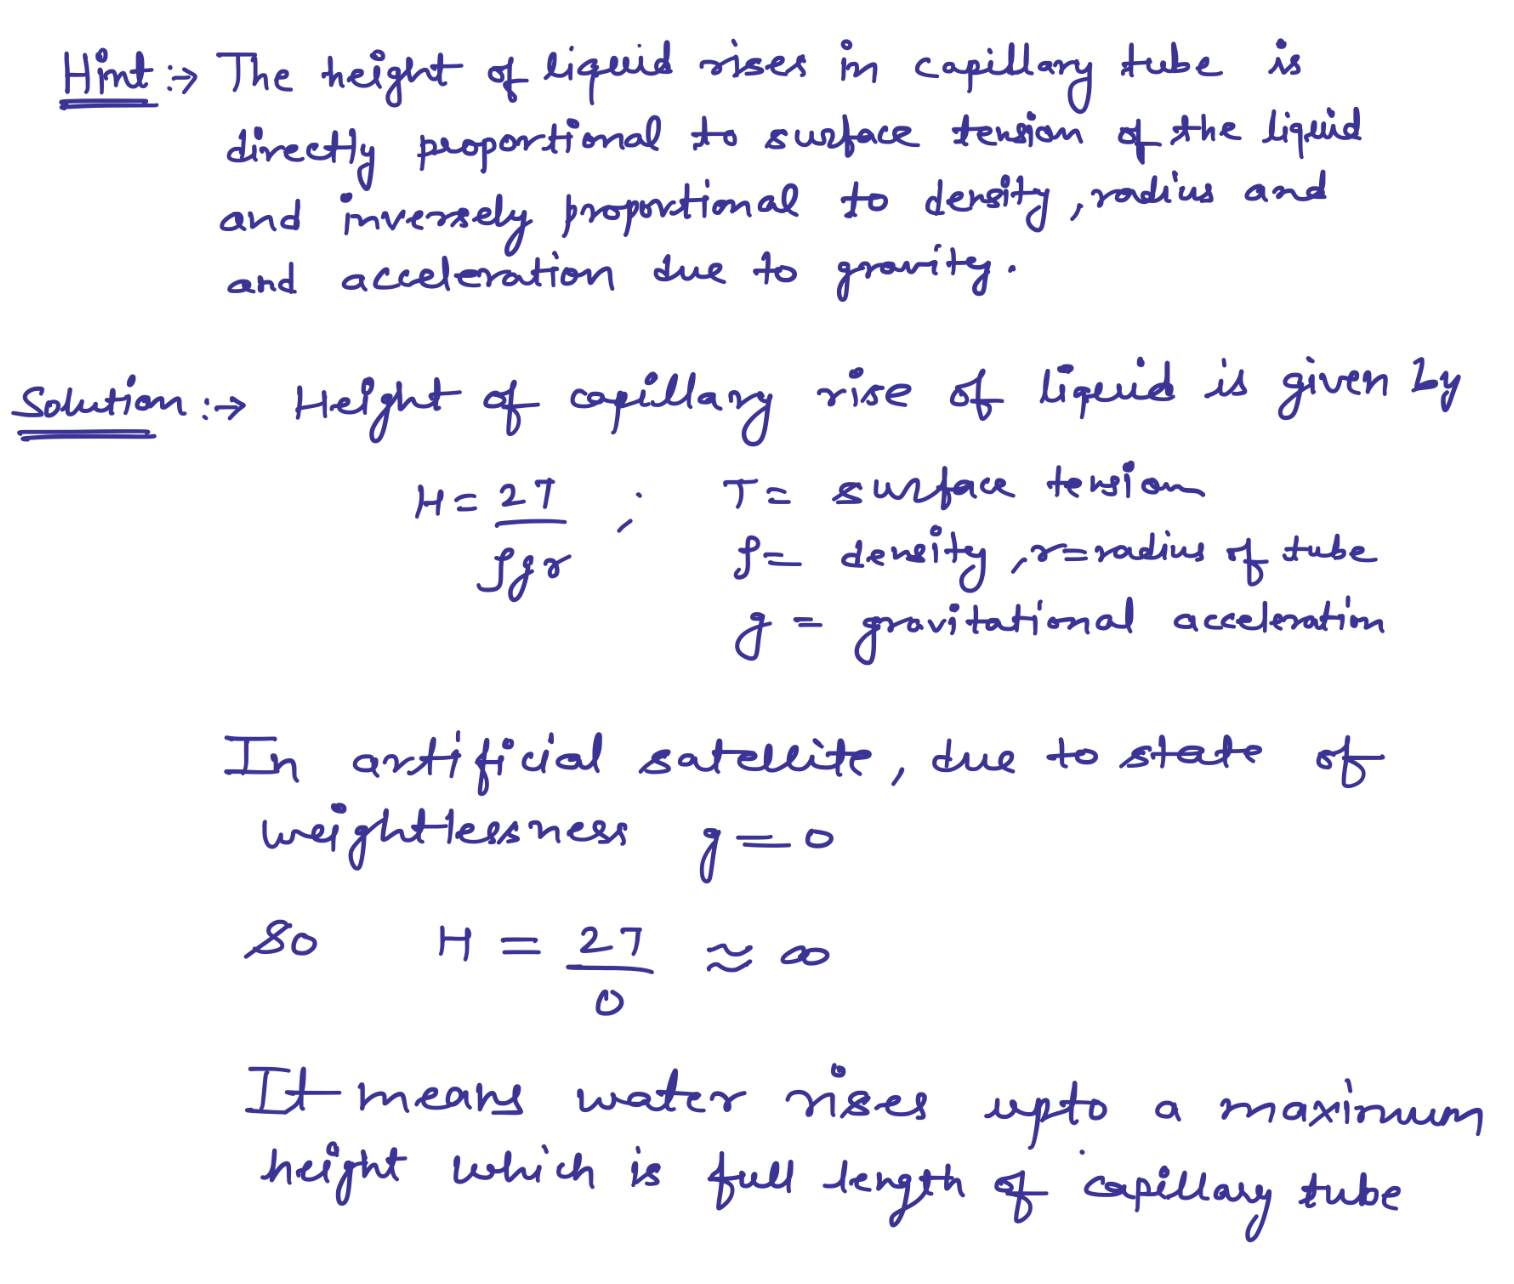 Hint :→ The height of liquid rises in capillary tube is
directly proportional to surface tension of the liquid
and inversely proportional to density, radius and
and acceleration due to gravity.
Solution :→ Height of capillary rise of liquid is given by
H = 2T/ρgr ; T = surface tension
ρ = density, r = radius of tube
g = gravitational acceleration
In artificial satellite, due to state of
weightlessness g = 0
So H = 2T/0 ≈ ∞
It means water rises upto a maximum
height which is full length of capillary tube